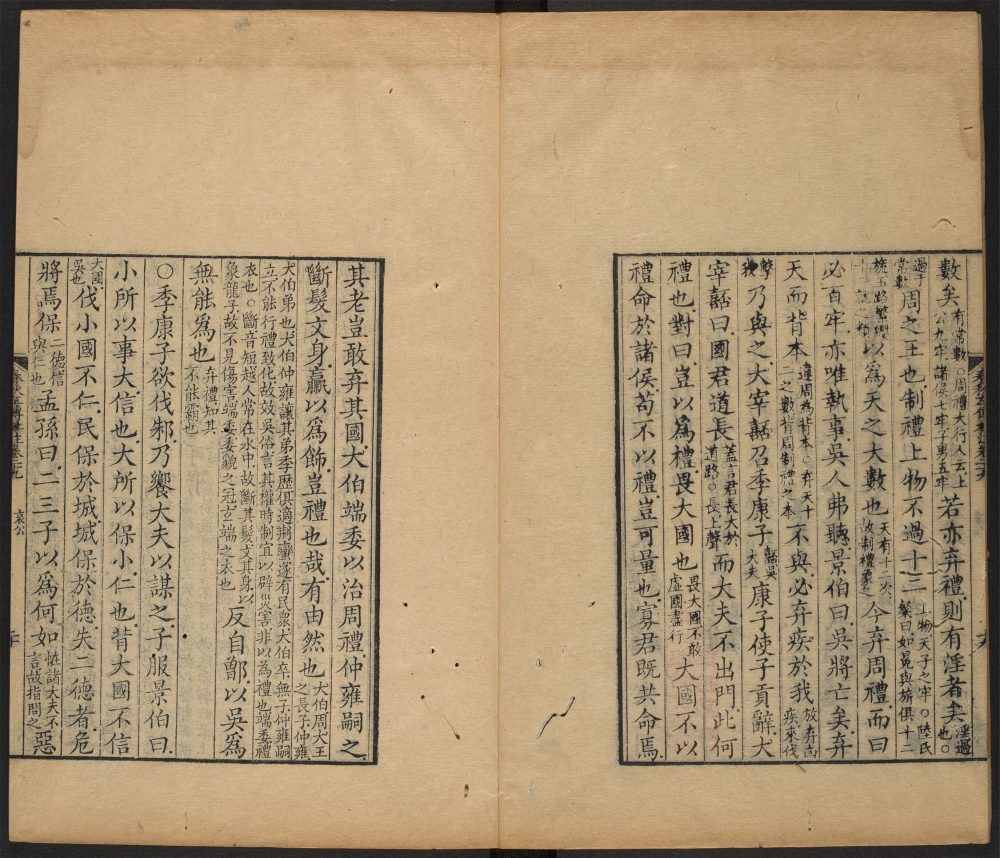 數矣有常數○周禮大行人云上公九牢諸侯七牢子男五牢若亦弃禮則有淫者矣淫過也○
過常數周之王也制禮上物不過十二上物天子之牢○陸氏粲曰如冕與旂俱十二
旒玉路樊纓以爲天之大數也天有十二次故制禮象之今弃周禮而曰
必百牢亦唯執事吳人弗聽景伯曰吳將亡矣弃
天而背本違周爲背本○弃天十二之數背周制禮之本不與必弃疾於我放弃凶疾來伐
擊我乃與之大宰嚭召季康子嚭吳大夫康子使子貢辭大
宰嚭曰國君道長蓋言君長大於道路○長上聲而大夫不出門此何
禮也對曰豈以爲禮畏大國也畏大國不敢虛國盡行大國不以
禮命於諸侯苟不以禮豈可量也寡君既共命焉
其老豈敢弃其國大伯端委以治周禮仲雍嗣之
斷髮文身臝以爲飾豈禮也哉有由然也大伯周大王之長子仲雍
大伯弟也大伯仲雍讓其弟季歷俱適荆蠻遂有民衆大伯卒無子仲雍嗣
立不能行禮致化故效吳俗言其權時制宜以辟災害非以為禮也端委禮
衣也○斷音短越人常在水中故斷其髮文其身以
象龍子故不見傷害端委委貌之冠玄端之衣也反自鄫以吳爲
無能爲也弃禮知其不能霸也
○季康子欲伐邾乃饗大夫以謀之子服景伯曰
小所以事大信也大所以保小仁也背大國不信
大國吳也伐小國不仁民保於城城保於德失二德者危
將焉保二德信與仁也孟孫曰二三子以爲何如恠諸大夫不言故指問之惡
哀公